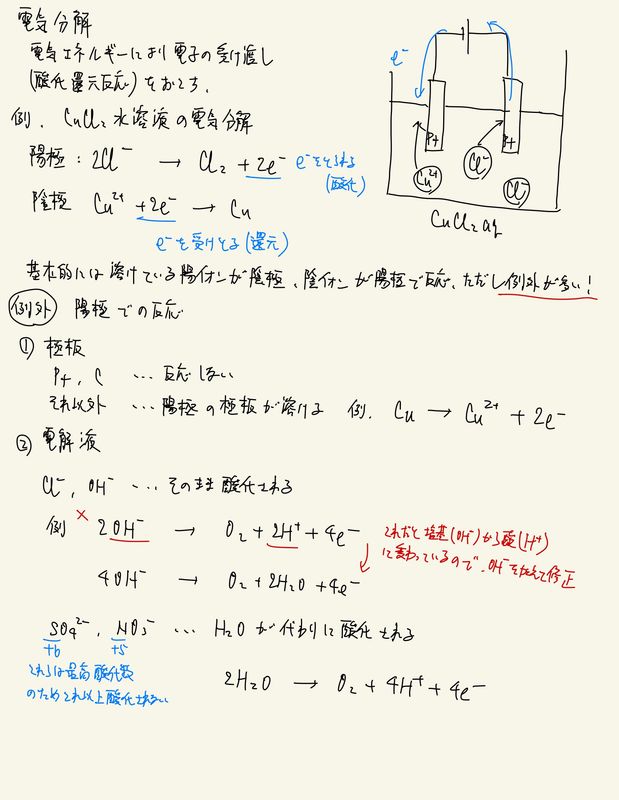 電気分解
電気エネルギーにより電子の受け渡し
(酸化還元反応)をおこす.
例. CuCl₂水溶液の電気分解
陽極: 2Cl⁻ → Cl₂ + 2e⁻ e⁻をとられる
(酸化)
陰極 Cu²⁺ + 2e⁻ → Cu
e⁻を受けとる(還元)
e⁻
Pt
Pt
Cu²⁺
Cl⁻
Cl⁻
CuCl₂aq
基本的には溶けている陽イオンが陰極、陰イオンが陽極で反応、ただし例外が多い!
例外 陽極での反応
① 極板
Pt, C … 反応しない
それ以外 … 陽極の極板が溶ける 例. Cu → Cu²⁺ + 2e⁻
② 電解液
Cl⁻, OH⁻ … そのまま酸化される
例 × 2OH⁻ → O₂ + 2H⁺ + 4e⁻
これだと塩基(OH⁻)から酸(H⁺)
に変わっているので、OH⁻をたして修正
4OH⁻ → O₂ + 2H₂O + 4e⁻
SO₄²⁻, NO₃⁻ … H₂Oが代わりに酸化される
+6 +5
これらは最高酸化数
のためこれ以上酸化されない
2H₂O → O₂ + 4H⁺ + 4e⁻